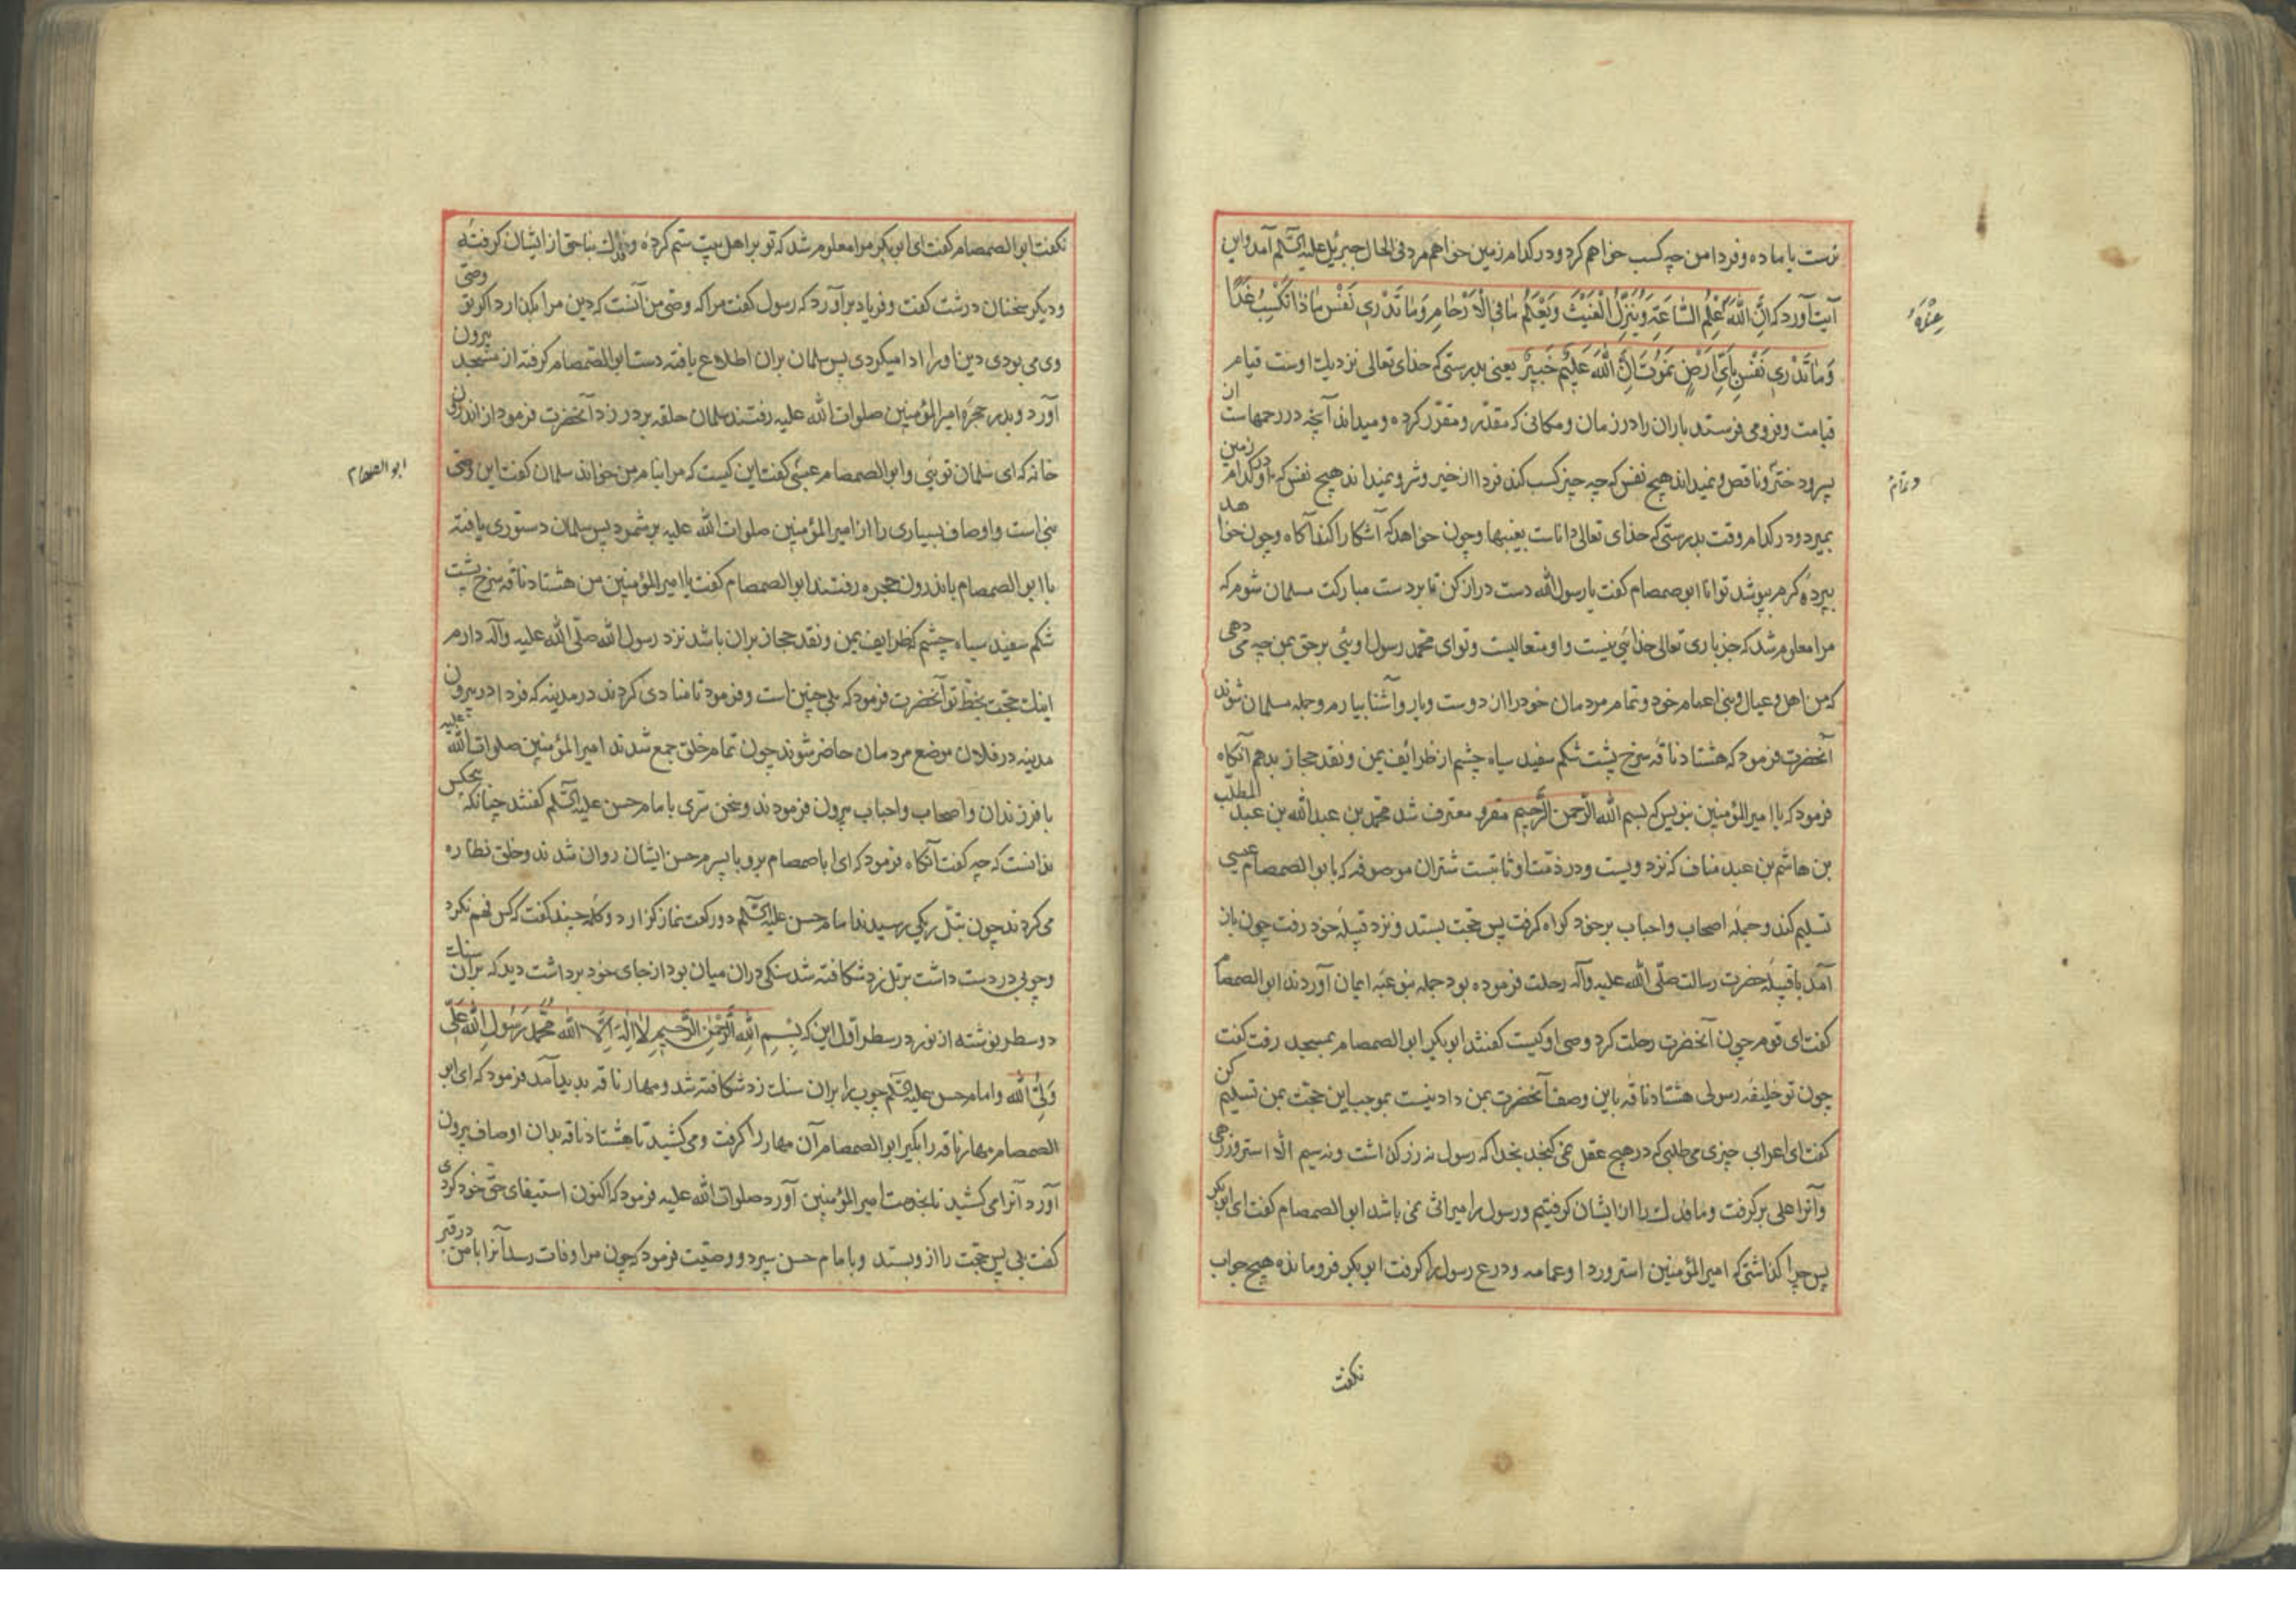 نرست یا ماده و فردا من چه کسب خواهم کرد و در کدام زمین خواهم مرد فی الحال جبرئیل علیه السّلم آمد و این
آیت آورد که اِنَّ اللّٰهَ عِنْدَهُ عِلْمُ السَّاعَةِ وَیُنَزِّلُ الْغَیْثَ وَیَعْلَمُ مَا فِی الْاَرْحَامِ وَمَا تَدْرِی نَفْسٌ مَاذَا تَکْسِبُ غَدًا
وَمَا تَدْرِی نَفْسٌ بِاَیِّ اَرْضٍ تَمُوتُ اِنَّ اللّٰهَ عَلِیمٌ خَبِیرٌ یعنی بدرستی که خدای تعالی نزدیک اوست قیام
قیامت و فرو می فرستد باران را در زمان و مکانی که مقدّر و مقرّر کرده و میداند آنچه در رحمهاست از
پسر و دختر و تمام و ناقص و نمیداند هیچ نفس که چه چیز کسب کند فردا از خیر و شر و نمیداند هیچ نفس که او در کدام زمین
بمیرد و در کدام وقت بدرستی که خدای تعالی داناست بغیبها و چون خواهد که آشکارا کند آگاه و چون خواهد
بپرده کرم بپوشد توانا ابوصمصام کفت یا رسول الله دست دراز کن تا بر دست مبارکت مسلمان شوم که
مرا معلوم شد که جز باری تعالی خدائی نیست و او متعالیست و تو ای محمد رسول اوئی بر حق بمن چه می دهی
که من اهل و عیال و بنی اعمام خود و تمام مردمان خود را از دوست و یار و آشنا بیارم و جمله مسلمان شوند
آنحضرت فرمود که هشتاد ناقه سرخ پشت شکم سفید سیاه چشم از ظرائف یمن و نقد حجاز بدهم آنکاه
فرمود که یا امیر المؤمنین بنویس که بسم الله الرّحمن الرّحیم مقر و معترف شد محمّد بن عبدالله بن عبد المطلب
بن هاشم بن عبد مناف که نزد ویست و در ذمّت او ثابتست شتران موصوفه که بابو الصمصام عبسی
تسلیم کند و جمله اصحاب و احباب بر خود کواه کرفت پس حجّت بستد و نزد قبیله خود رفت چون باز
آمد با قبیله حضرت رسالت صلّی الله علیه و آله رحلت فرموده بود جمله بنو عبه ایمان آوردند ابو الصمصام
کفت ای قوم چون آنحضرت رحلت کرد وصی او کیست کفتند ابوبکر ابو الصمصام بمسجد رفت کفت
چون تو خلیفه رسولی هشتاد ناقه باین وصف آنحضرت بمن دادنیست بموجب این حجّت بمن تسلیم کن
کفت ای اعرابی چیزی می طلبی که در هیچ عقل نمی کنجد بخدا که رسول نه زر کذاشت و نه سیم الّا استر و زرهی
و آنرا علی بر کرفت و ما فدک را از ایشان کرفتیم و رسول را میراثی نمی باشد ابو الصمصام کفت ای ابوبکر
پس چرا کذاشتی که امیر المؤمنین استر و ردا و عمامه و درع رسول را کرفت ابوبکر فرو مانده هیچ جواب
نکفت
عِنْدَهُ
و تمام
نکفت ابو الصمصام کفت ای ابوبکر مرا معلوم شد که تو بر اهل بیت ستم کرده و فدک بناحق از ایشان کرفته
و دیکر سخنان درشت کفت و فریاد برآورد که رسول کفت مرا که وصّی من آنست که دین مرا بکذارد اکر تو وصّی
وی می بودی دین او را ادا میکردی پس سلمان بران اطلاع یافته دست ابو الصمصام کرفته از مسجد بیرون
آورد و بدر حجره امیر المؤمنین صلوات الله علیه رفتند سلمان حلقه بر در زد آنحضرت فرمود از اندرون
خانه که ای سلمان توئی و ابو الصمصام عبسی کفت این کیست که مرا بنام من خواند سلمان کفت این وصّی
نبی است و اوصاف بسیاری را از امیر المؤمنین صلوات الله علیه برشمرد پس سلمان دستوری یافته
با ابو الصمصام باندرون حجره رفتند ابو الصمصام کفت یا امیر المؤمنین من هشتاد ناقه سرخ پشت
شکم سفید سیاه چشم که ظرایف یمن و نقد حجاز بران باشد نزد رسول الله صلّی الله علیه و آله دارم
اینک حجّت بخطّ تو آنحضرت فرمود که بلی چنین است و فرمود تا منادی کردند در مدینه که فردا در بیرون
مدینه در فلان موضع مردمان حاضر شوند چون تمام خلق جمع شدند امیر المؤمنین صلوات الله علیه
با فرزندان و اصحاب و احباب بیرون فرمودند و سخن سرّی با امام حسن علیه السّلم کفتند چنانکه هیچکس
ندانست که چه کفت آنکاه فرمود که ای اباصمصام برو با پسرم حسن ایشان روان شدند و خلق نظاره
می کردند چون بتلّ ریکی رسیدند امام حسن علیه السّلم دو رکعت نماز کزارد و کلمه چند کفت که کس فهم نکرد
و چوبی در دست داشت بر تل زد شکافته شد سنکی دران میان بود از جای خود برداشت دید که بران سنک
دو سطر نوشته از نور در سطر اوّل این که بِسْمِ اللّٰهِ الرَّحْمٰنِ الرَّحِیمِ لَا اِلٰهَ اِلَّا اللّٰهُ مُحَمَّدٌ رَسُولُ اللّٰهِ عَلِیٌّ
وَلِیُّ اللّٰهِ و امام حسن علیه السّلم چوب را بران سنک زد شکافته شد و مهار ناقه بدید آمد فرمود که ای ابو
الصمصام مهار ناقه را بکیر ابو الصمصام آن مهار را کرفت و می کشید تا هشتاد ناقه بدان اوصاف بیرون
آورد آنرا می کشید تا بخدمت امیر المؤمنین آورد صلوات الله علیه فرمود که اکنون استیفای حقّ خود کردی
کفت بلی پس حجّت را ازو بستد و بامام حسن سپرد و وصیّت فرمود که چون مرا وفات رسد آنرا با من در قبر
ابو الصمصام